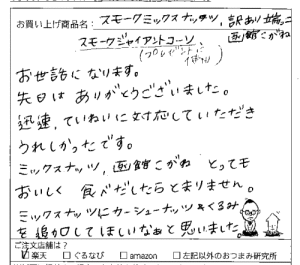 お買い上げ商品名: スモークミックスナッツ, 訳あり
函館こがね
スモークジャイアントコーン
お世話になります。
先日は ありがとうございました。
迅速, ていねいに対応していただき
うれしかったです。
ミックスナッツ, 函館こがね とっても
おいしく 食べだしたらとまりません。
ミックスナッツにカシューナッツやくるみ
を追加してほしいなぁと思いました。
ご注文店舗は?
☑楽天 □ぐるなび □amazon □左記以外のおつまみ研究所